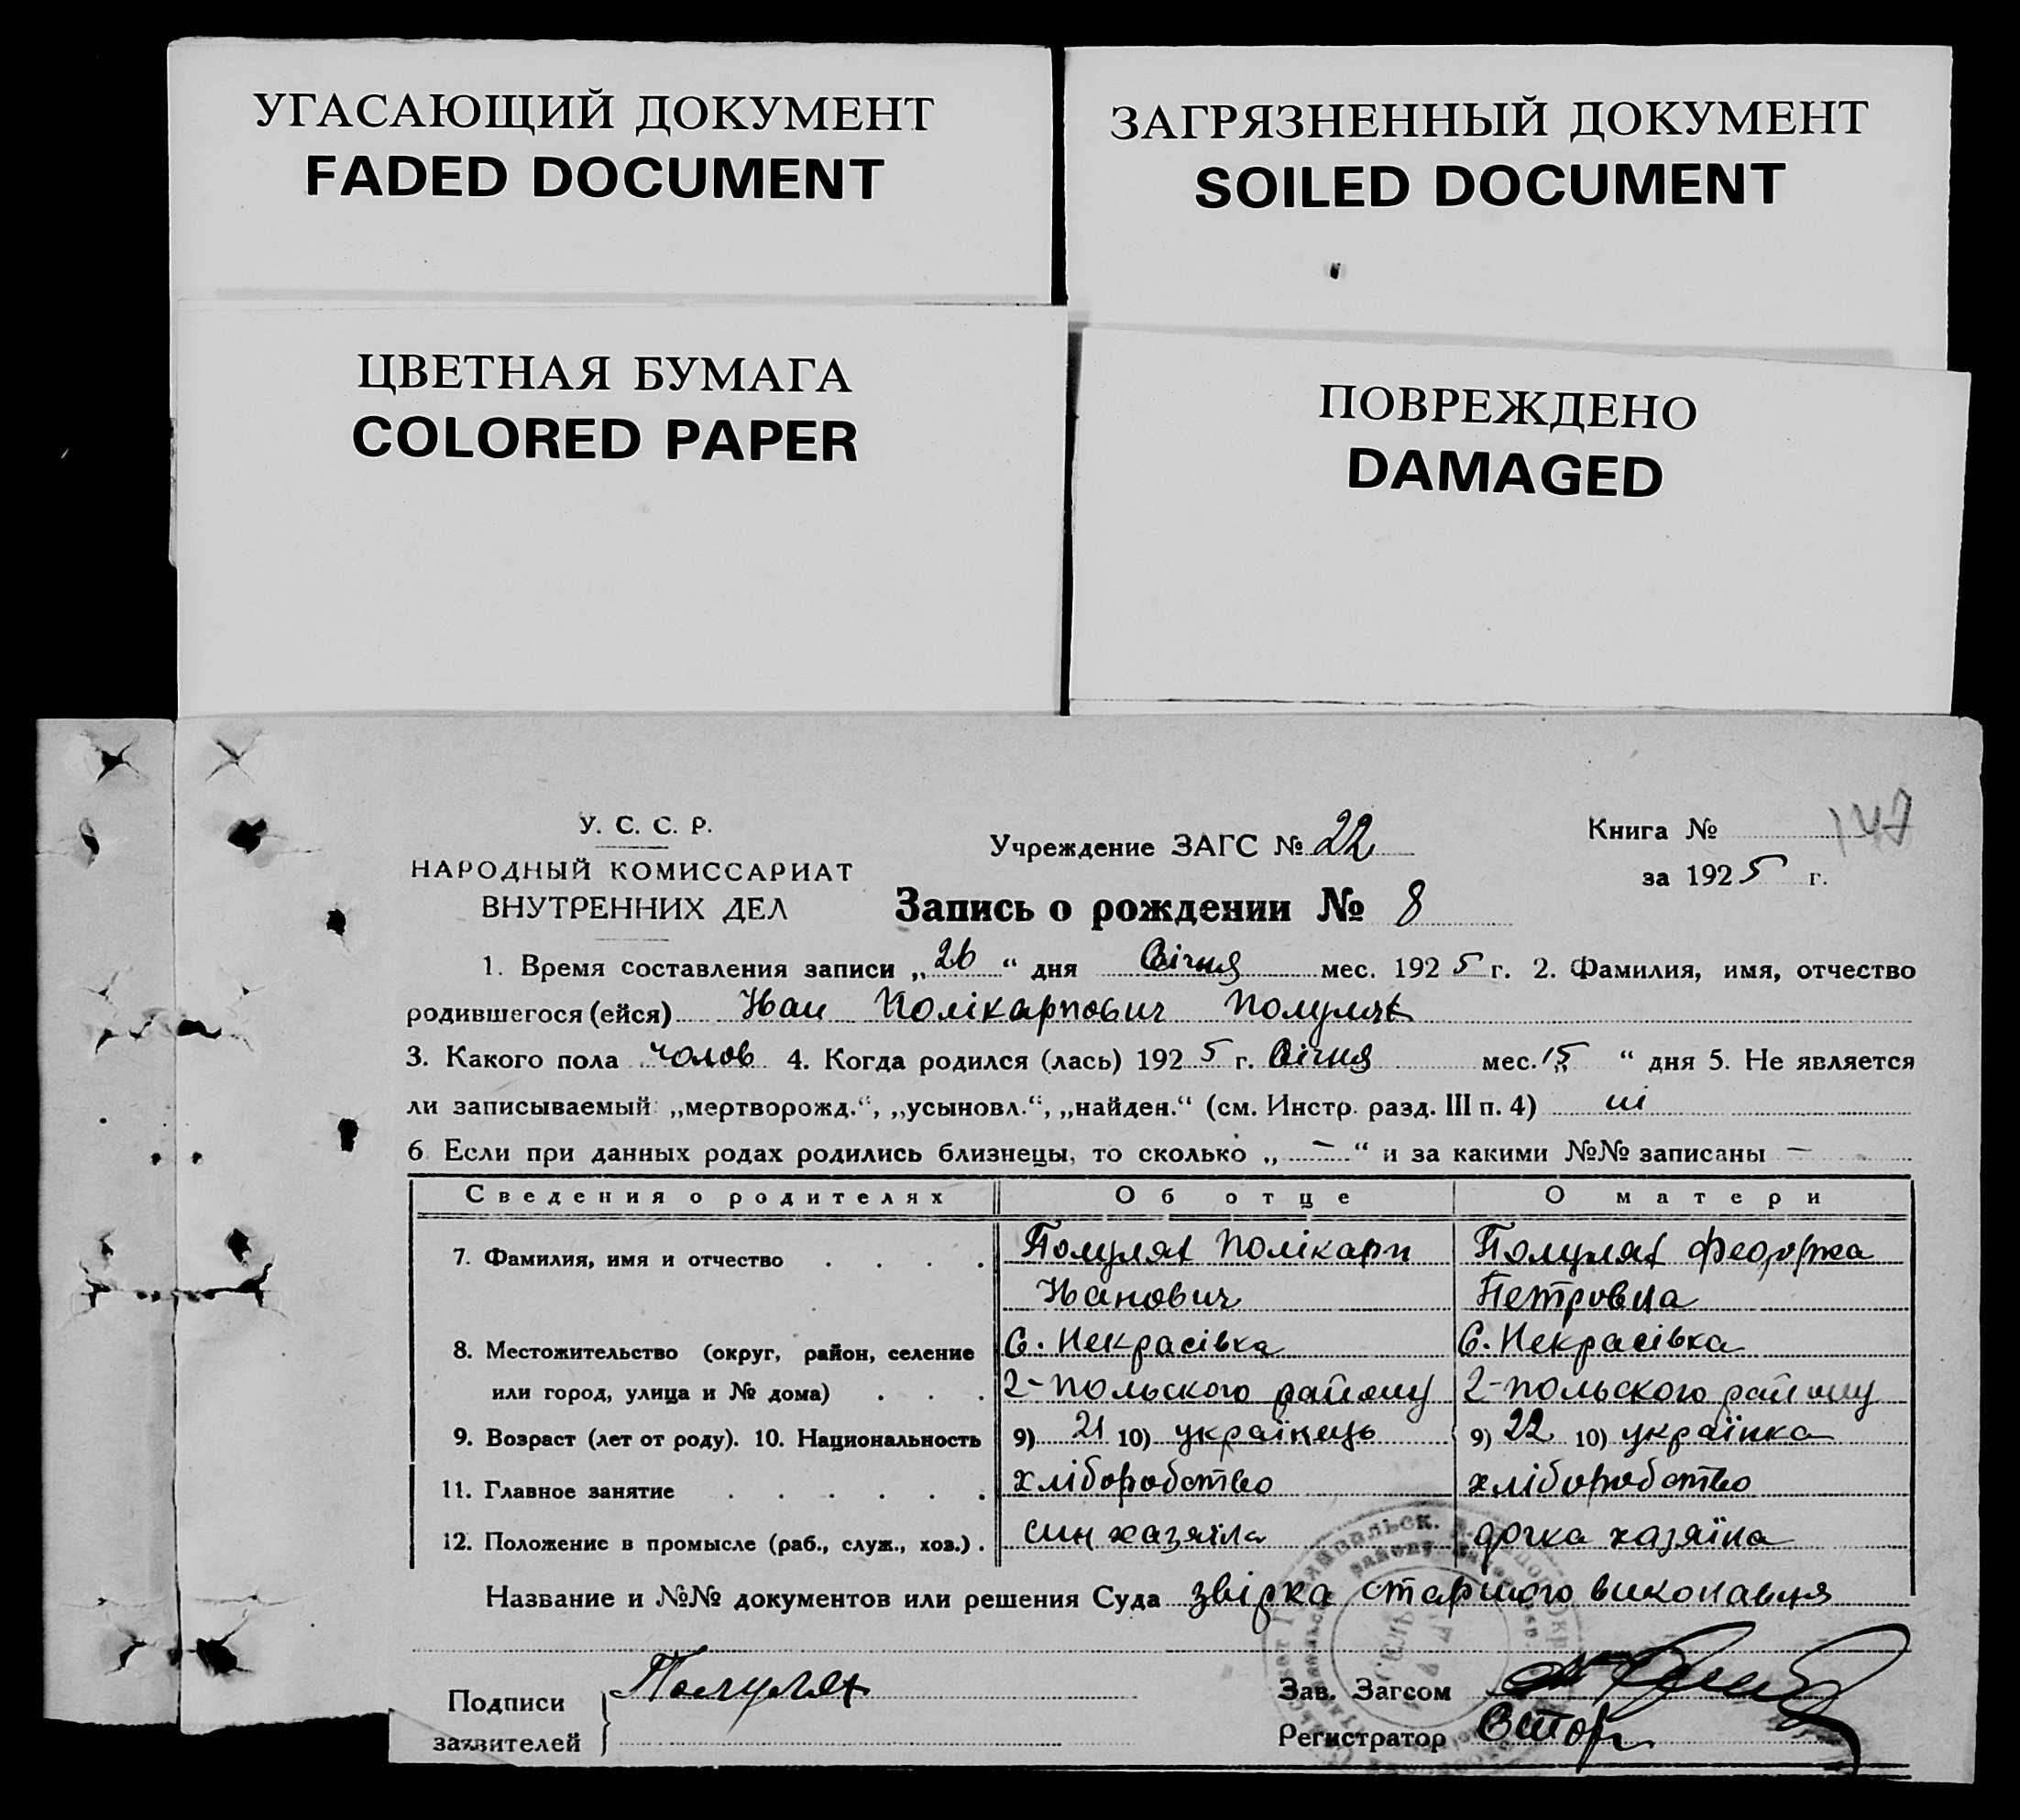 УГАСАЮЩИЙ ДОКУМЕНТ
FADED DOCUMENT
ЗАГРЯЗНЕННЫЙ ДОКУМЕНТ
SOILED DOCUMENT
ЦВЕТНАЯ БУМАГА
COLORED PAPER
ПОВРЕЖДЕНО
DAMAGED
У. С. С. Р.
НАРОДНЫЙ КОМИССАРИАТ
ВНУТРЕННИХ ДЕЛ
Учреждение ЗАГС № 22
Книга № 147
за 1925 г.
Запись о рождении № 8
1. Время составления записи „26“ дня Січня мес. 1925 г. 2. Фамилия, имя, отчество
родившегося (ейся) Іван Полікарпович
3. Какого пола чолов 4. Когда родился (лась) 1925 г. Січня мес. „15“ дня 5. Не является
ли записываемый „мертворожд.“, „усыновл.“, „найден.“ (см. Инстр. разд. III п. 4) ні
6 Если при данных родах родились близнецы, то сколько „—“ и за какими №№ записаны —
Сведения о родителях Об отце О матери
7. Фамилия, имя и отчество Полікарп
Іванович Петровна
8. Местожительство (округ, район, селение С. Некрасівка С. Некрасівка
или город, улица и № дома) 2-польского району 2-польского району
9. Возраст (лет от роду). 10. Национальность 9) 21 10) українець 9) 22 10) українка
11. Главное занятие хліборобство хліборобство
12. Положение в промысле (раб., служ., хоз.) син хазяїна дочка хазяїна
Название и №№ документов или решения Суда звірка старшого виконавця
Подписи
заявителей
Зав. Загсом
Регистратор